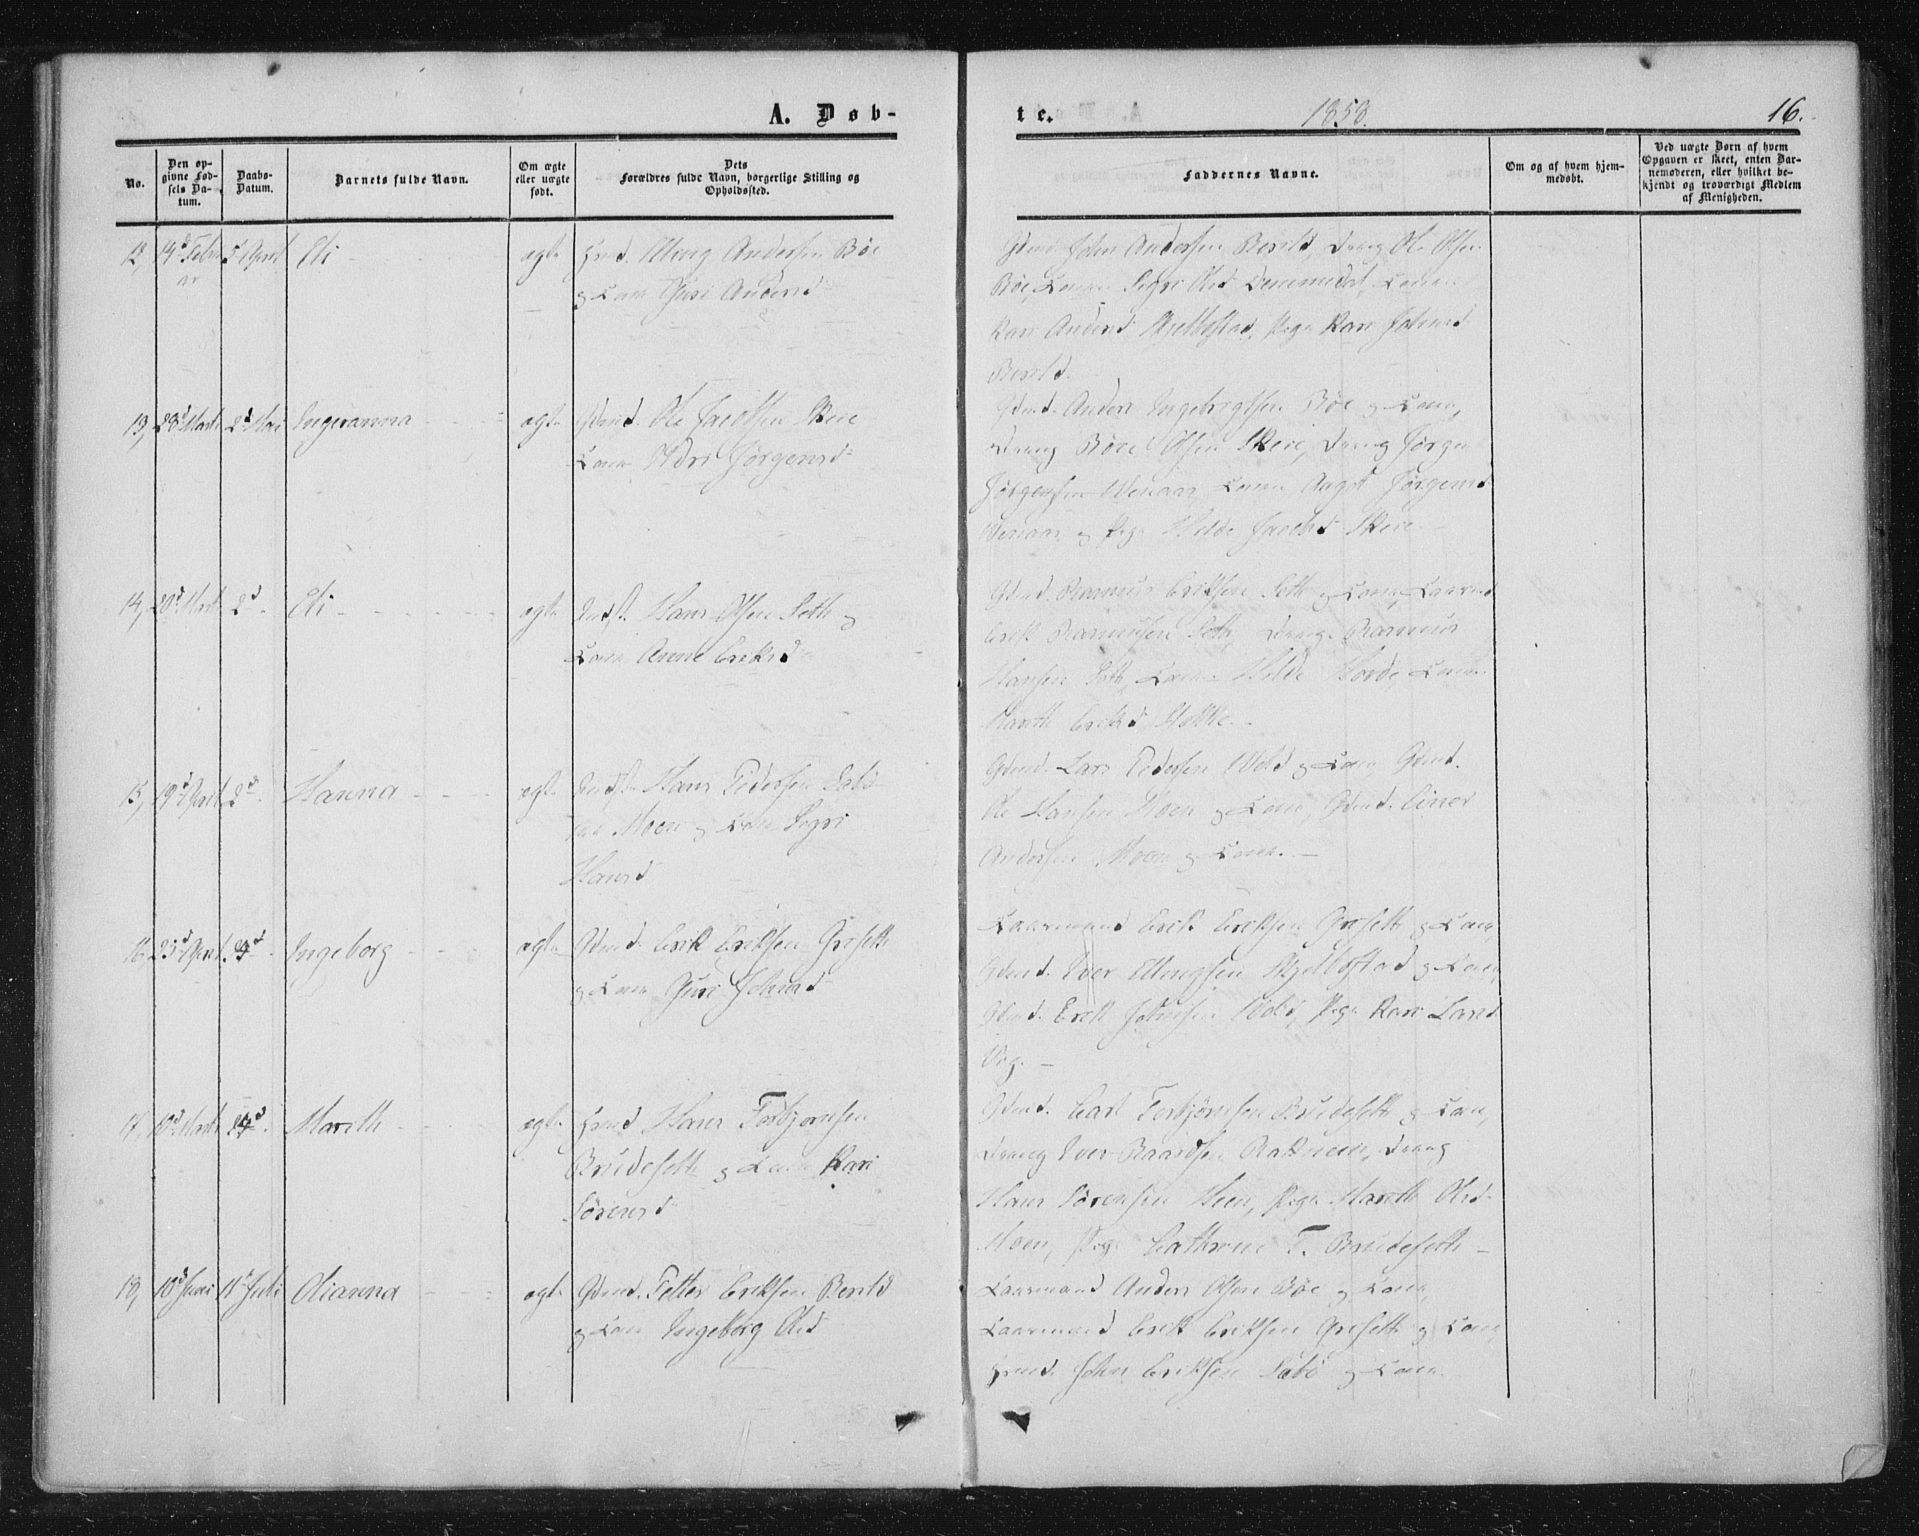 A. Døb-
te.
1858.
16.
No.
Den op-
givne Fød-
sels Da-
tum.
Daabs-
Datum.
Barnets fulde Navn.
Om ægte
eller uægte
født.
Dets
Forældres fulde Navn, borgerlige Stilling og
Opholdssted.
Faddernes Navne.
Om og af hvem hjem-
medøbt.
Ved uægte Børn af hvem
Opgaven er skeet, enten Bar-
nemoderen, eller hvilket be-
kjendt og troværdigt Medlem
af Menigheden.
12, 14d Febru 5 April Eli ægte Andersen Bøe
ar
og Kone Guri Andersd
Gdmd John Andersen Berild, Dreng Ole Olsen
Bøe, Konen Sigri Olsd Kone
Kari Andersd Skjelbostad, Pige Kari Johnsd
Berild.
13, 28d Marts 2d Mai Ingeranna ægte Gdmd. Ole Jacobsen Skeie
Kone Jørgensd
Gdmd. Anders Ingebrigtsen Bøe og Kone,
Dreng Olsen Skeie, Dreng Jørgen
Jørgensen Venaas, Konen Jørgensd
Venaas og Pige Jacobsd Skeie
14, 20d Marts 2d Eli ægte Indst. Hans Olsen Seth og
Kone Anne Eriksd
Gdmd Rasmus Eriksen Seth og Kone, Kaarmd
Erik Rasmusen Seth, Dreng Rasmus
Hansen Seth, Kone Kone
Marith Eriksd
15, 19d April 2d Hanna ægte Indst. Hans Pedersen Sabø
Moen og Kone Sigri
Hansd
Gdmd. Lars Pedersen Vold og Kone, Gdmd.
Ole Hansen Moen og Kone, Gdmd. Einer
Andersen Moen og Kone.
16 25d April 24d Ingeborg ægte Gdmd Erik Eriksen Griseth
og Kone Guri Johnsd
Kaarmand Erik Eriksen Griseth og Kone,
Gdmd. Iver Ellingsen Skjelbostad og Kone,
Gdmd. Erik Johnsen Vold, Pige Kari Larsd
17, 10d Marts 24d Marith ægte Hans Torbjørnsen
Brudeseth og Kone Kari
Sørensd
Gdmd. Carl Torbjørnsen Brudeseth og Kone,
Dreng Iver Baardsen Dreng
Hans Sørensen Heen, Pige Marith Olsd
Moen, Pige Cathrine T. Brudeseth
18, 10d Juni 11d Juli Olianna ægte Gdmd. Petter Eriksen Berild
og Kone Ingeborg Olsd
Kaarmand Anders Olsen Bøe og Kone,
Kaarmand Erik Eriksen Griseth og Kone,
John Eriksen Sabø og Kone